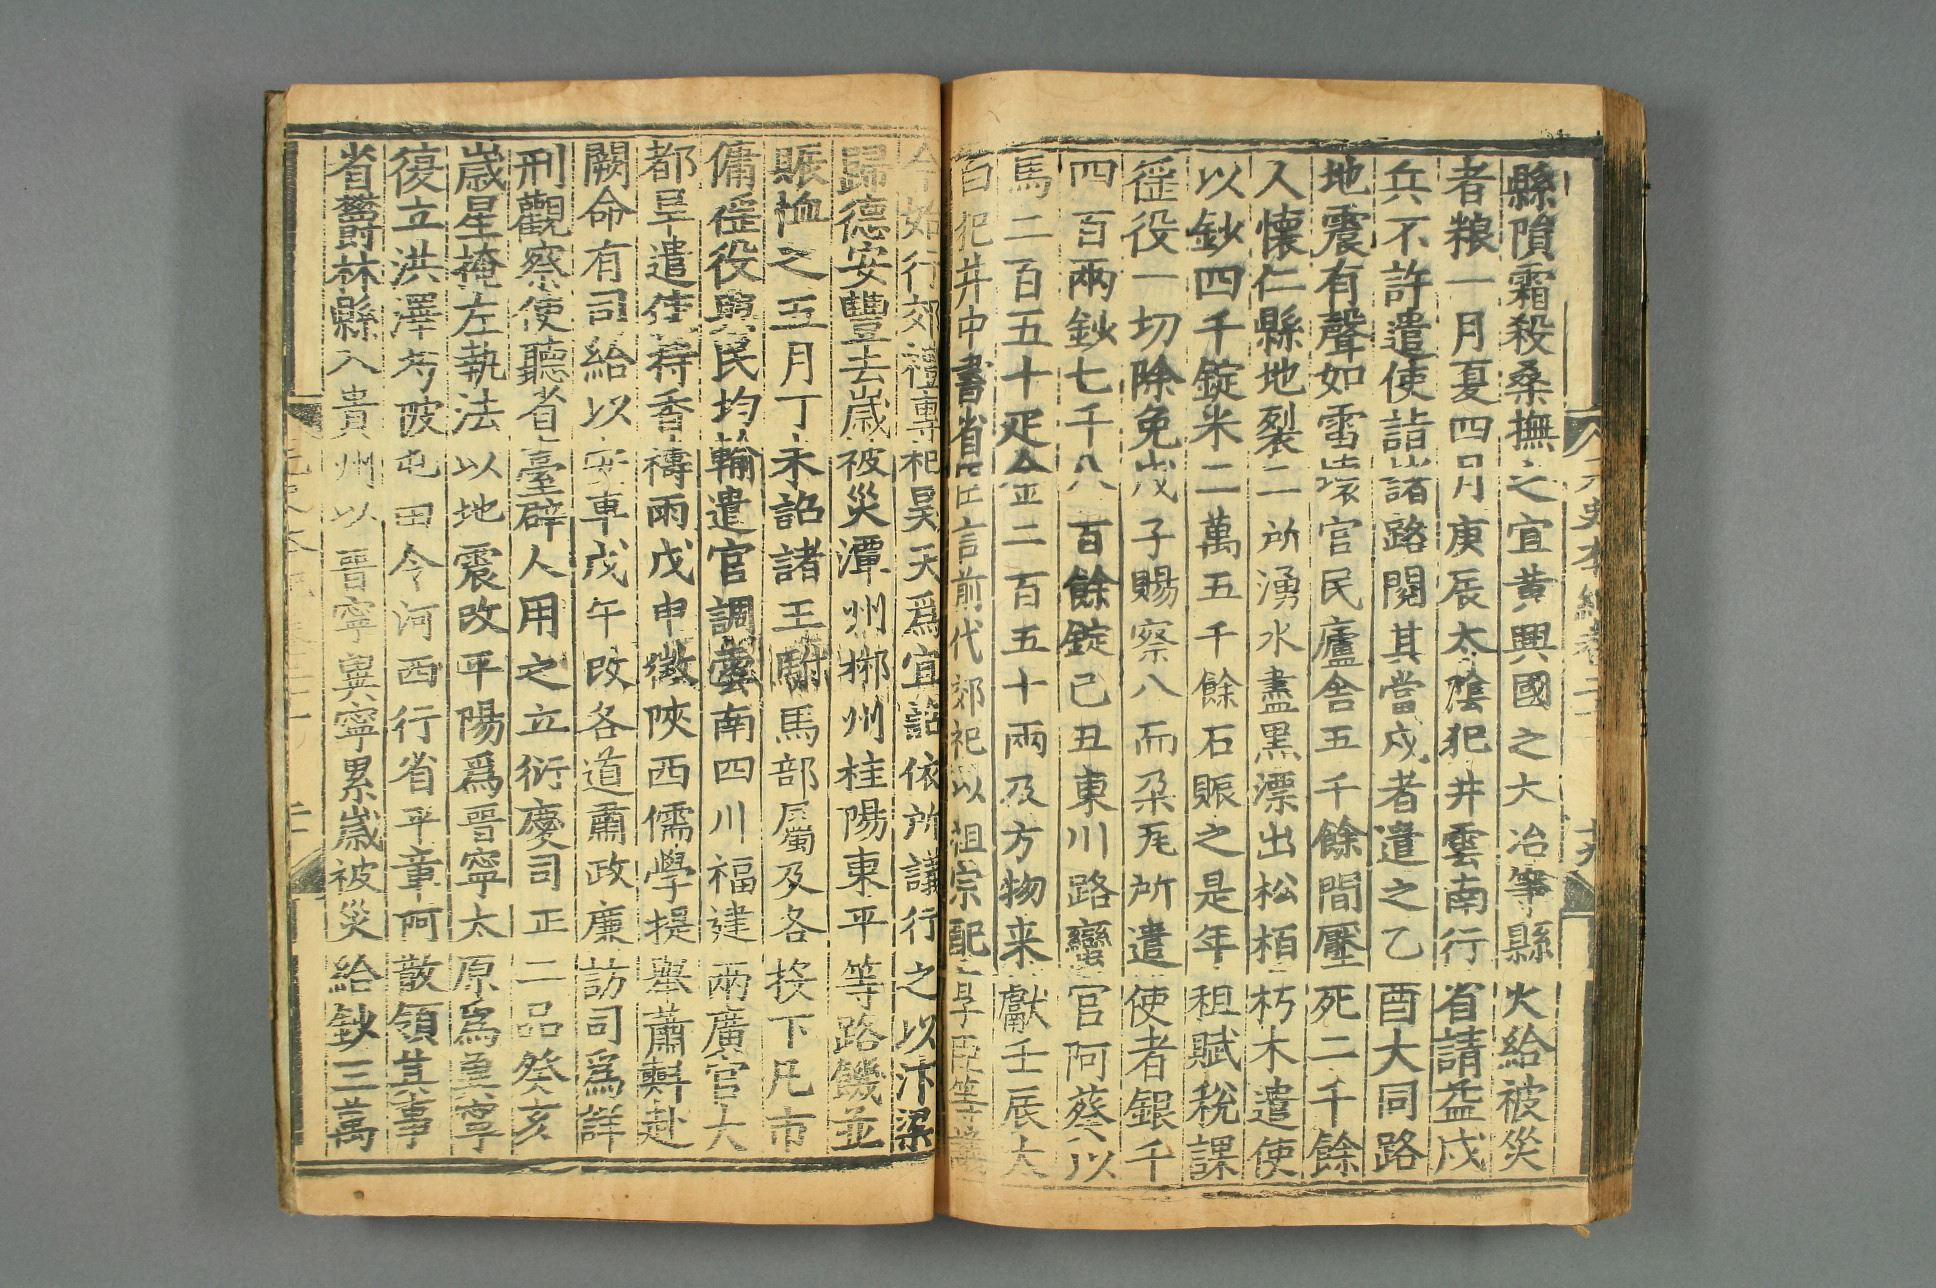 元史本紀卷二十一 十九
縣隕霜殺桑撫之宜黃興國之大冶等縣火給被災
者粮一月夏四月庚辰太陰犯井雲南行省請益戍
兵不許遣使詣諸路閱其當戍者遣之乙酉大同路
地震有聲如雷壞官民廬舍五千餘間壓死二千餘
人懷仁縣地裂二所湧水盡黑漂出松栢朽木遣使
以鈔四千錠米二萬五千餘石賑之是年租賦稅課
徭役一切除免戊子賜察八而朶瓦所遣使者銀千
四百兩鈔七千八百餘錠己丑東川路蠻官阿葵以
馬二百五十疋金二百五十兩及方物来獻壬辰太
白犯井中書省臣言前代郊祀以祖宗配享臣等議
今始行郊禮專祀昊天爲宜詔依所議行之以汴梁
歸德安豐去歲被災潭州郴州桂陽東平等路饑並
賑恤之五月丁未詔諸王駙馬部屬及各投下凡市
傭徭役與民均輸遣官調雲南四川福建兩廣官大
都旱遣使持香禱雨戊申徵陝西儒學提舉蕭㪺赴
闕命有司給以安車戊午改各道肅政廉訪司爲詳
刑觀察使聽省臺辟人用之立衍慶司正二品癸亥
歲星掩左執法以地震改平陽爲晋寧太原爲冀寧
復立洪澤芍陂屯田令河西行省平章阿散領其事
省欝林縣入貴州以晋寧冀寧累歲被災給鈔三萬